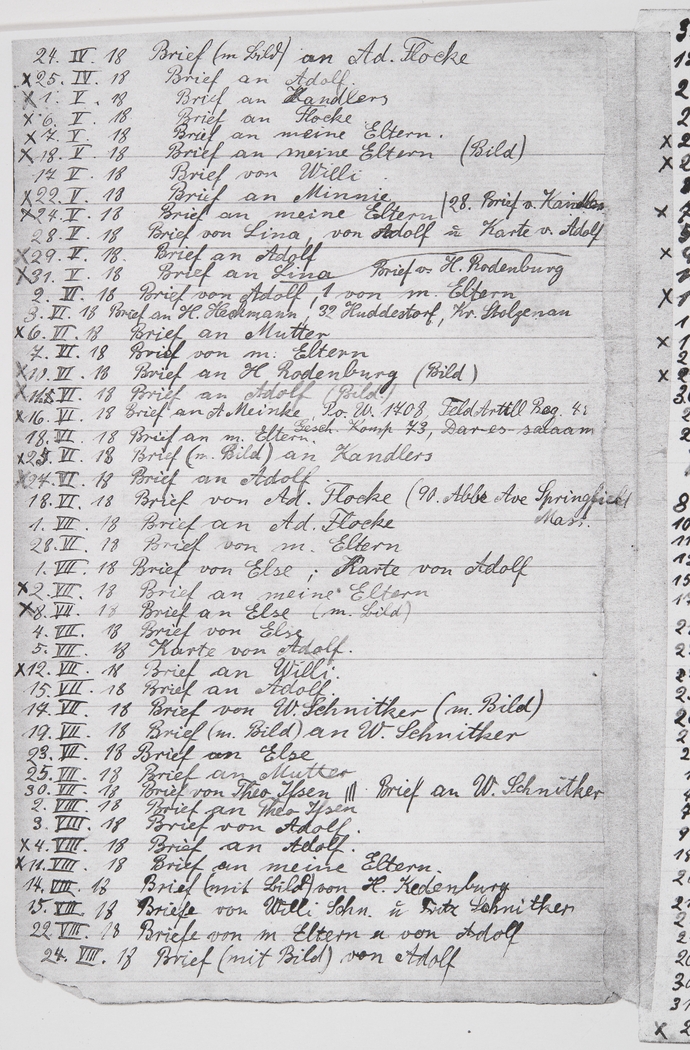 24. IV. 18 Brief (m. Bild) an Ad. Flocke
x 25. IV. 18 Brief an Adolf.
x 1. V. 18 Brief an Kandlers
x 6. V. 18 Brief an Flocke
x 7. V. 18 Brief an meine Eltern.
x 18. V. 18 Brief an meine Eltern (Bild)
17 V. 18 Brief von Willi
x 22. V. 18 Brief an Minnie
x 24. V. 18 Brief an meine Eltern | 28. Brief v. Kandlers
28. V. 18 Brief von Lina, von Adolf u. Karte v. Adolf
x 29. V. 18. Brief an Adolf
x 31. V. 18 Brief an Lina Brief v. H. Rodenburg
2. VI. 18 Brief von Adolf, 1 von m. Eltern
3. VI. 18 Brief an H. Heckmann, 32 Huddestorf, Kr. Stolzenau
x 6. VI. 18 Brief an Mutter
7. VI. 18 Brief von m. Eltern
x 10. VI. 18 Brief an H Rodenburg (Bild)
x VI. 18 Brief an Adolf (Bild)
x 16. VI. 18 Brief an A Meinke, P.o. W. 1708, Feld Artill Reg.
Gesch. Komp 73, Dar-es-salaam
18. VI. 18 Brief an m. Eltern.
x VI. 18 Brief (m. Bild) an Kandlers
x 27. VI. 18 Brief an Adolf
18. VI. 18 Brief von Ad. Flocke (90. Abbe Ave Springfield
Mass.
1. VII. 18 Brief an Ad. Flocke
28. VI. 18 Brief von m. Eltern
1. VII. 18 Brief von Else ; Karte von Adolf
x 2. VII. 18 Brief an meine Eltern
x 8. VII 18 Brief an Else (m. Bild)
4. VII. 18 Brief von Else
5. VII. 18 Karte von Adolf.
x 12. VII. 18 Brief an Willi.
15. VII. 18 Brief an Adolf.
17. VII. 18 Brief von W. Schnitker (m. Bild)
19. VII. 18 Brief (m. Bild) an W. Schnitker
23. VII. 18 Brief an Else
25. VII. 18 Brief an Mutter
30. VII. 18 Brief von Theo Ysen ||| Brief an W. Schnitker
2. VIII. 18 Brief an Theo Ysen
3. VIII. 18 Brief von Adolf.
x 4. VIII. 18 Brief an Adolf.
x 11. VIII. 18 Brief an meine Eltern.
14. VIII. 18 Brief (mit Bild) von H. Redenburg
15. VIII. 18 Briefe von Willi Schn. u Fritz Schnitker
22 VIII. 18 Briefe von m. Eltern u von Adolf
24. VIII. 18 Brief (mit Bild) von Adolf